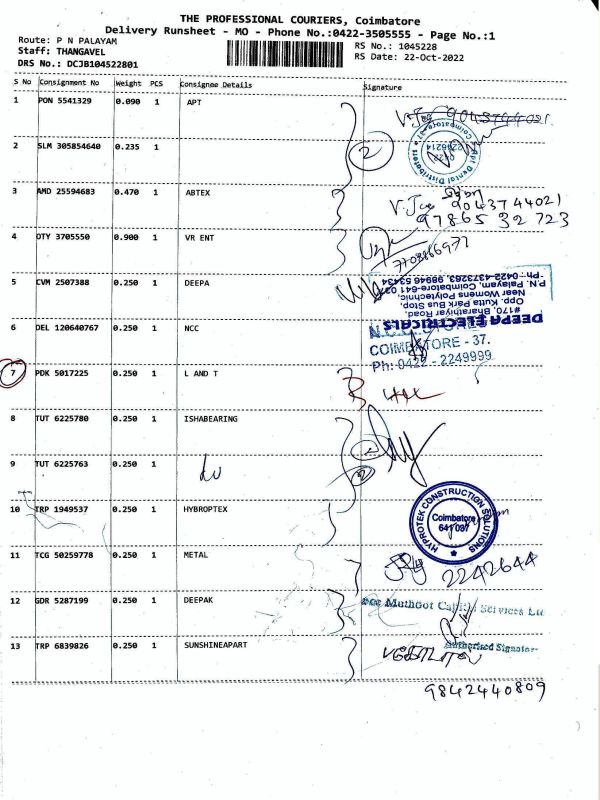 THE PROFESSIONAL COURIERS, Coimbatore
Delivery Runsheet - MO - Phone No.:0422-3505555 - Page No.:1
Route: P N PALAYAM
RS No.: 1045228
Staff: THANGAVEL
RS Date: 22-Oct-2022
DRS No.: DCJB104522801
S No Consignment No Weight PCS Consignee Details Signature
1 PON 5541329 0.090 1 APT
2 SLM 305854640 0.235 1 2
Apt Dental Distributors
Coimbatore
3 AMD 25594683 0.470 1 ABTEX 9043744021
97865 32 723
4 OTY 3705550 0.900 1 VR ENT
5 CVM 2507388 0.250 1 DEEPA
DEEPA ELECTRICALS
#170, Bharathiyar Road,
Opp. Kutta Park Bus Stop,
Near Womens Polytechnic,
P.N. Palayam, Coimbatore-641 037
Ph: 0422-4373263, 98946 53434
6 DEL 120640767 0.250 1 NCC
COIMBATORE - 37.
Ph: 0422 - 2249999
7 PDK 5017225 0.250 1 L AND T
8 TUT 6225780 0.250 1 ISHABEARING
9 TUT 6225763 0.250 1
10 TRP 1949537 0.250 1 HYBROPTEX
HYPROTEK CONSTRUCTION SOLUTIONS
Coimbatore
641 037
11 TCG 50259778 0.250 1 METAL 2242644
12 GDR 5287199 0.250 1 DEEPAK
For Muthoot Capital Services Lt
Authorised Signator
13 TRP 6839826 0.250 1 SUNSHINEAPART
9842440809